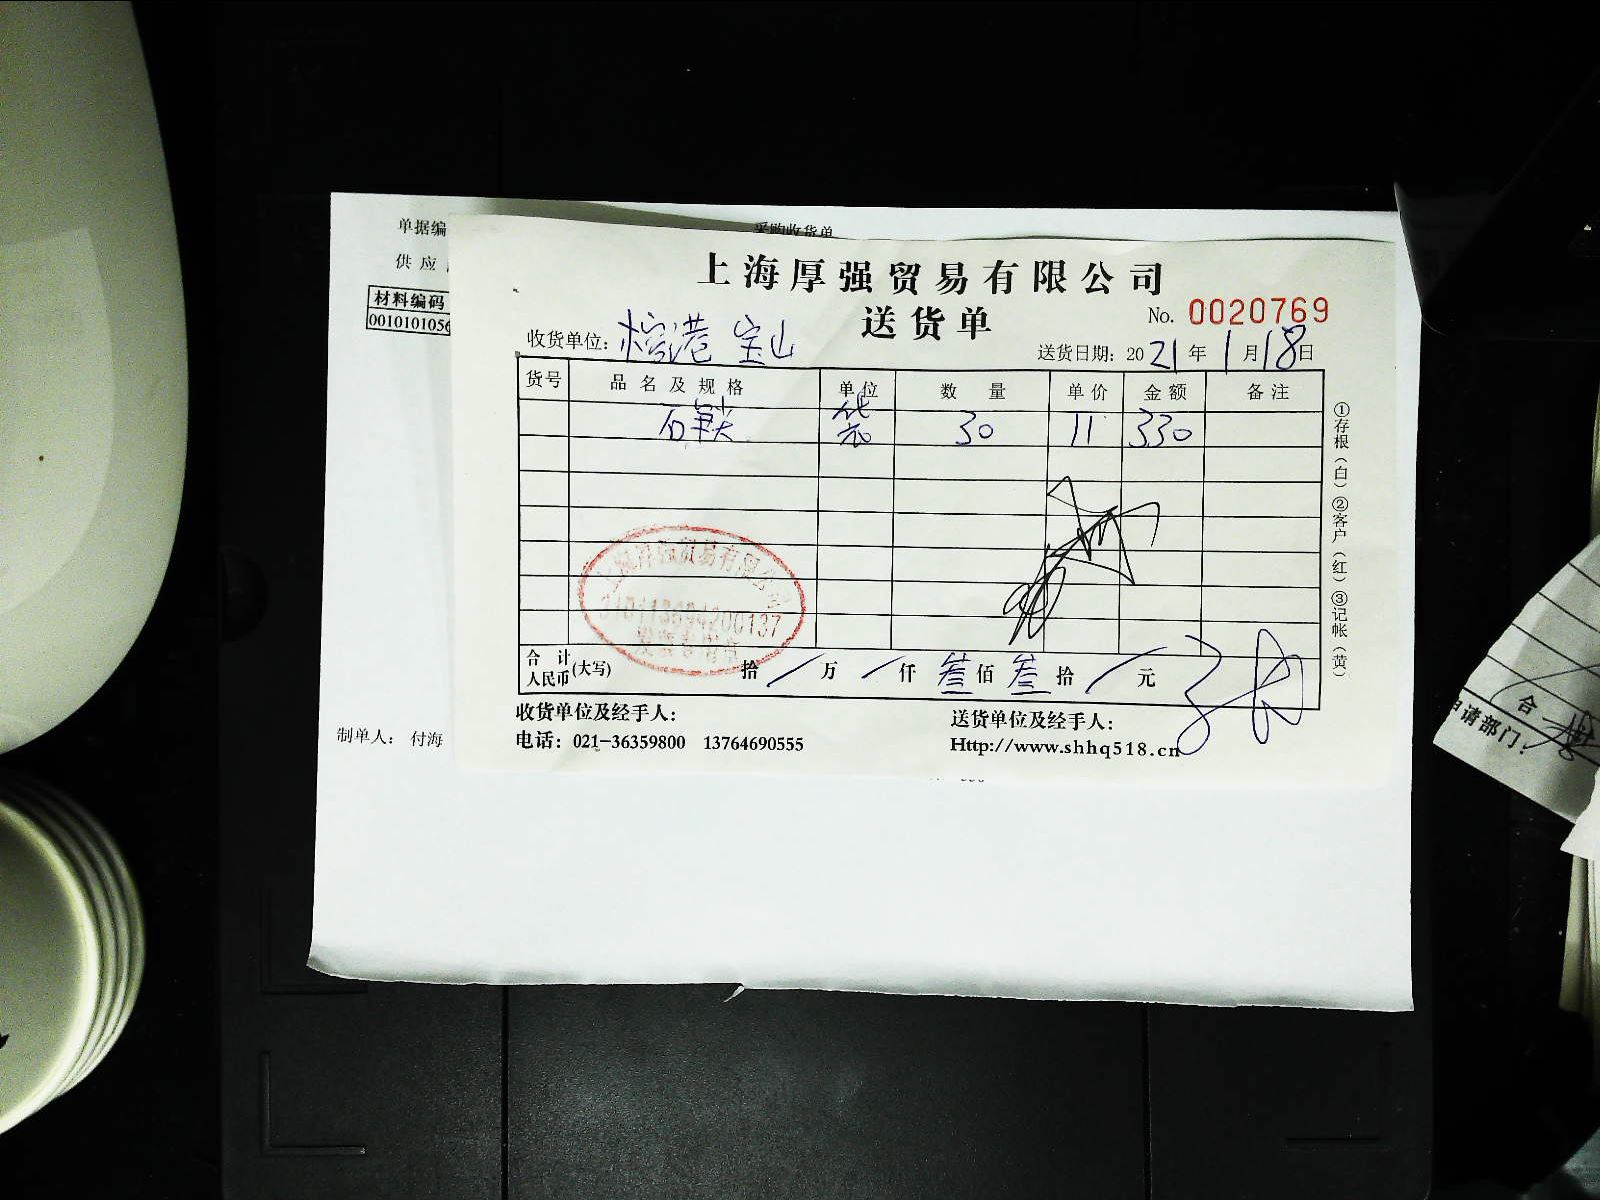 单据编
采购收货单
供应
材料编码
001010105
上海厚强贸易有限公司
送货单
No. 0020769
收货单位: 榕港 宝山
送货日期: 2021年1月18日
货号 品名及规格 单位 数量 单价 金额 备注
袋 30 11 330
①存根(白) ②客户(红) ③记帐(黄)
上海厚强贸易有限公司
合计人民币(大写) 拾 / 万 / 仟 叁 佰 叁 拾 / 元
收货单位及经手人:
送货单位及经手人:
电话: 021-36359800 13764690555
Http://www.shhq518.cn
制单人: 付海
合
申请部门: